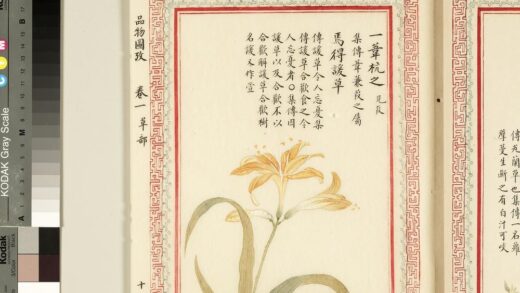 傳芄蘭草也集傳一名蘿
摩蔓生斷之有白汁可啖
一葦杭之 見葭
集傳葦蒹葭之屬
焉得諼草
傳諼草令人忘憂集
傳諼草合歡食之令
人忘憂者〇集傳因
諼草以及合歡不以
合歡解諼草合歡樹
名諼本作萱
品物圖攷 卷一 草部 十
KODAK Gray Scale
C
Y
M
A
M
B
Kodak